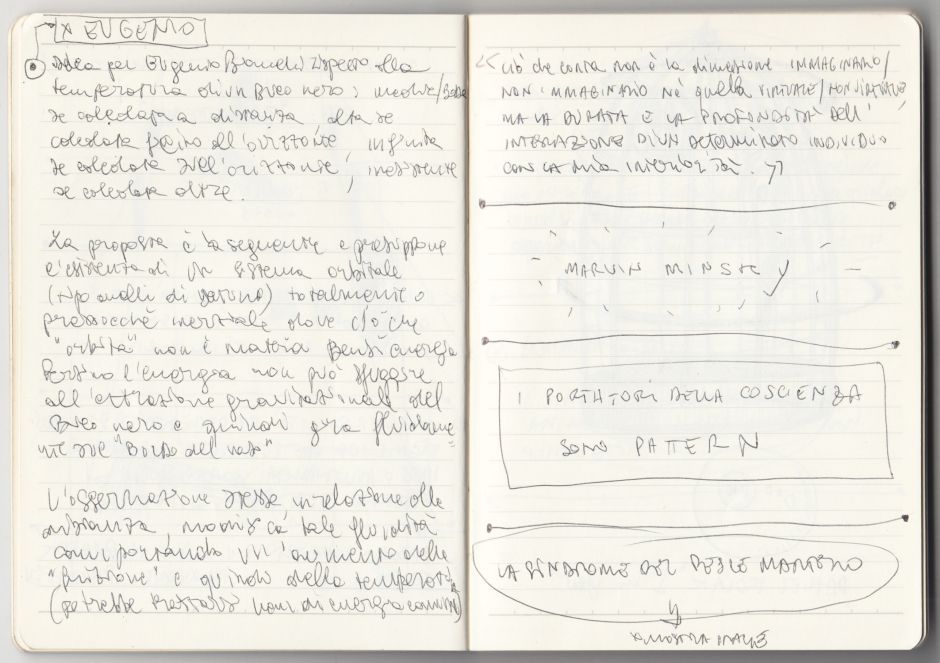 X EUGENIO
Idea per Eugenio Bianchi rispetto alla
temperatura di un Buco nero: media/
se calcolata a distanza, alta se
calcolata vicino all'orizzonte, infinita
se calcolata sull'orizzonte, inesistente
se calcolata oltre.
La proposta è la seguente e presuppone
l'esistenza di un sistema orbitale
(tipo anelli di saturno) totalmente o
pressocchè inerziale dove ciò che
"orbita" non è materia bensì energia
Persino l'energia non può sfuggire
all'attrazione gravitazionale del
Buco nero e quindi gira fluidame
nte sul "Bordo del vaso"
L'osservazione stessa, in relazione alla
distanza, modifica tale fluidità
comportando un aumento della
"frizione" e quindi della temperatura
(potrebbe trattarsi non di energia
"Ciò che conta non è la dimensione IMMAGINARIO/
NON IMMAGINARIO nè quella VIRTUALE/NON VIRTUALE
MA LA DURATA E LA PROFONDITÀ DELL'
INTEGRAZIONE D'UN DETERMINATO INDIVIDUO
CON LA MIA INTERIORITÀ."
MARVIN MINSKY
I PORTATORI DELLA COSCIENZA
SONO PATTERN
LA SINDROME DEL PESLE MARTENO
X MOSTRA